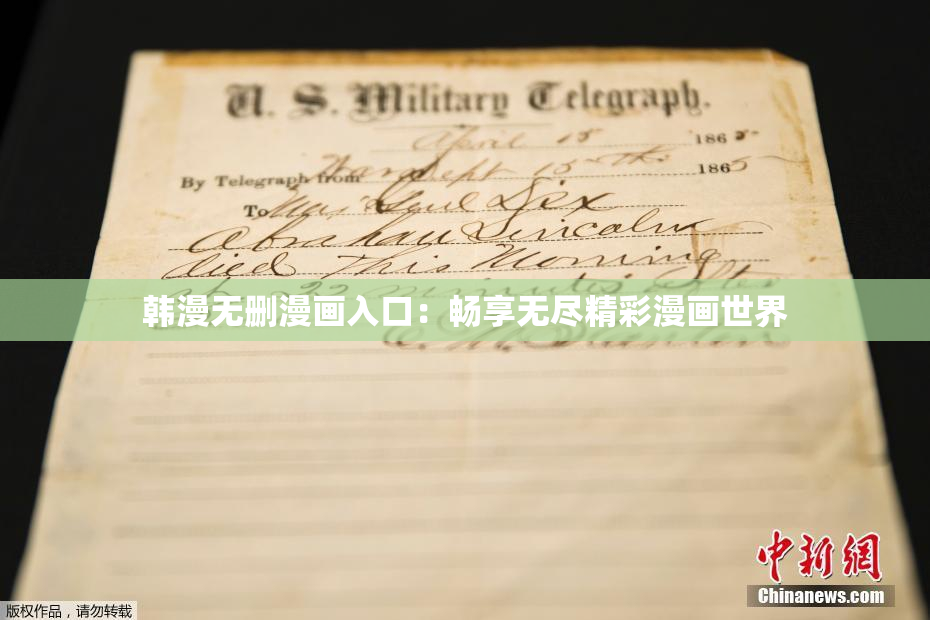 U. S. Military Telegraph.
April 15 1865
By Telegraph from War Dept 15th 1865
To Maj Genl Dix
Abraham Lincoln
died This Morning
at 22 minutes after
韩漫无删漫画入口：畅享无尽精彩漫画世界
E. M. Stanton
中新网
Chinanews.com
版权作品，请勿转载